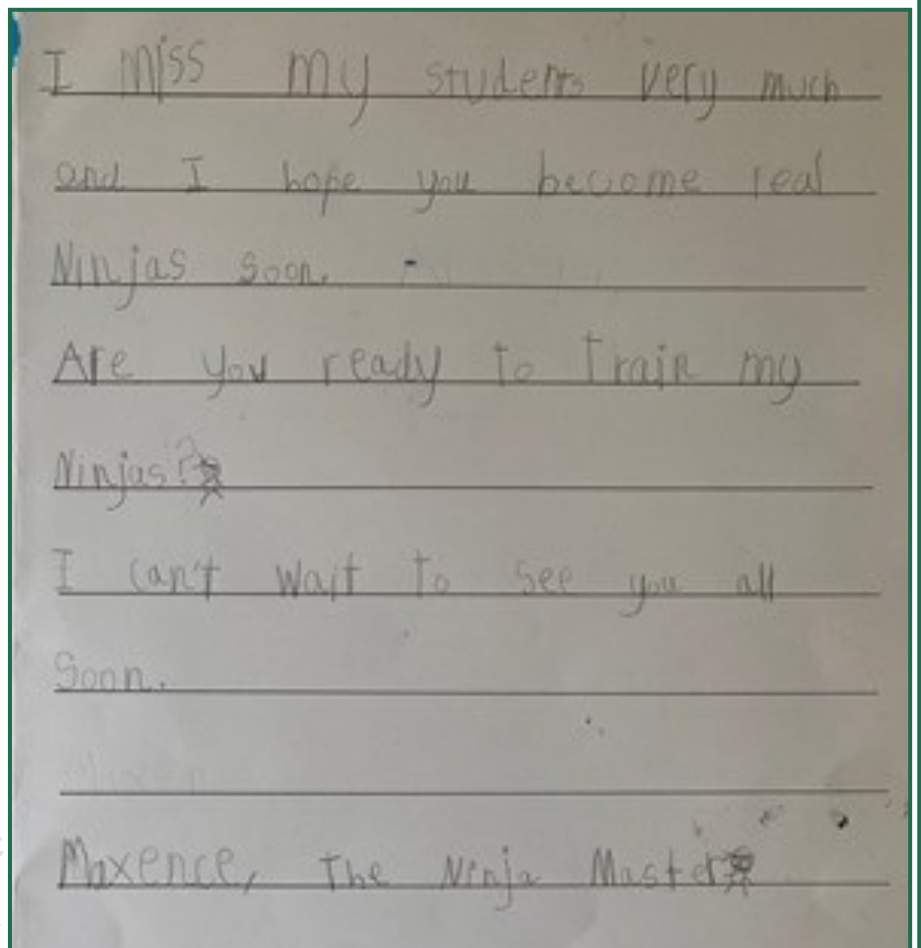 I miss my students very much
and I hope you become real
Ninjas soon.
Are you ready to train my
Ninjas?
I can't wait to see you all
Soon.
Maxence, The Ninja Master